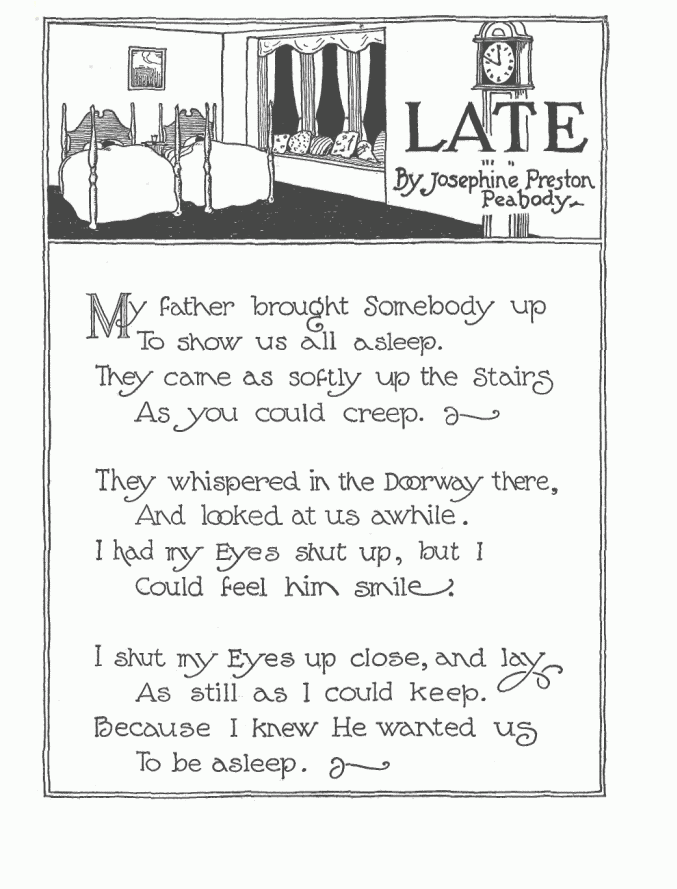 LATE
By Josephine Preston
Peabody
My father brought Somebody up
To show us all asleep.
They came as softly up the Stairs
As you could creep.
They whispered in the Doorway there,
And looked at us awhile.
I had my Eyes shut up, but I
Could feel him smile.
I shut my Eyes up close, and lay
As still as I could keep.
Because I knew He wanted us
To be asleep.